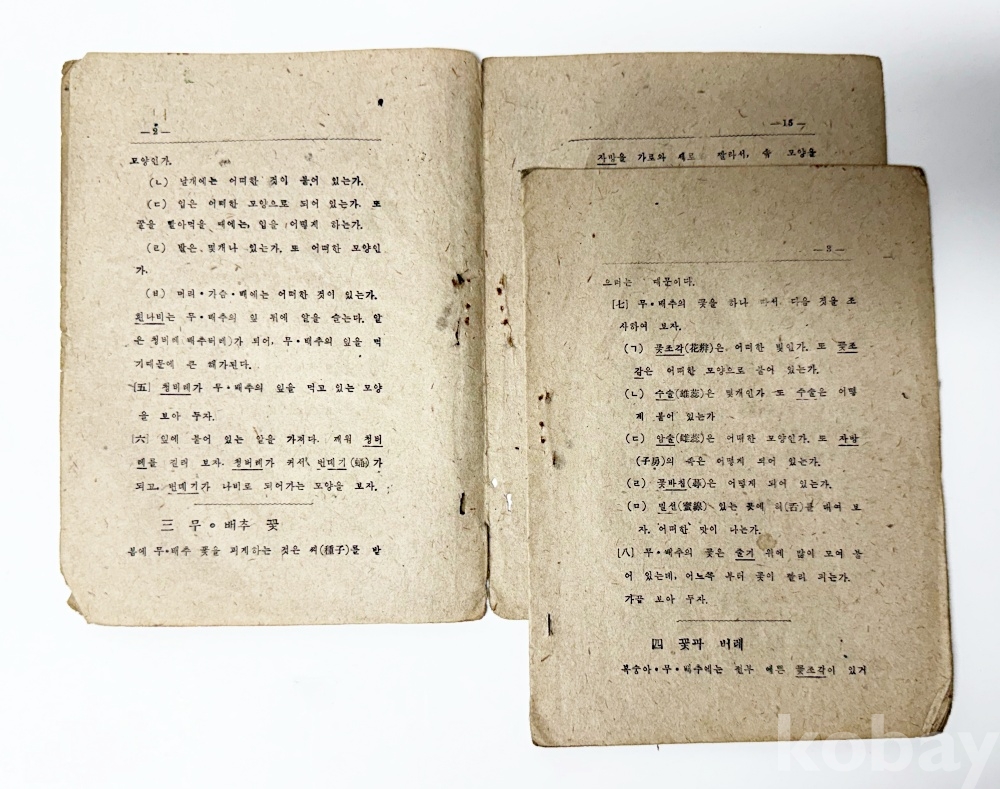 — 2 —
모양인가.
(ㄴ) 날개에는 어떠한 것이 붙어 있는가.
(ㄷ) 입은 어떠한 모양으로 되어 있는가. 또
꿀을 빨아먹을 때에는, 입을 어떻게 하는가.
(ㄹ) 발은 몇개나 있는가. 또 어떠한 모양인
가.
(ㅂ) 머리·가슴·배에는 어떠한 것이 있는가.
흰나비는 무·배추의 잎 뒤에 알을 슬는다. 알
은 청버레 배추버레)가 되어, 무·배추의 잎을 먹
기때문에 큰 해가된다.
[五] 청버레가 무·배추의 잎을 먹고 있는 모양
을 보아 두자.
[六] 잎에 붙어 있는 알을 가져다. 깨워 청버
레를 길러 보자. 청버레가 커서 번데기(蛹)가
되고, 번데기가 나비로 되어가는 모양을 보자.
三 무·배추 꽃
봄에 무·배추 꽃을 피게하는 것은 씨(種子)를 받
— 15 —
자방을 가로와 세로 짤라서, 속 모양을
— 3 —
으려는 때문이다.
[七] 무·배추의 꽃을 하나 따서 다음 것을 조
사하여 보자.
(ㄱ) 꽃조각(花瓣)은 어떠한 빛인가. 또 꽃조
각은 어떠한 모양으로 붙어 있는가.
(ㄴ) 수술(雄蕊)은 몇개인가 또 수술은 어떻
게 붙어 있는가
(ㄷ) 암술(雌蕊)은 어떠한 모양인가. 또 자방
(子房)의 속은 어떻게 되어 있는가.
(ㄹ) 꽃바침(萼)은 어떻게 되어 있는가.
(ㅁ) 밀선(蜜線) 있는 곳에 혀(舌)를 대여 보
자. 어떠한 맛이 나는가.
[八] 무·배추의 꽃은 줄기 위에 많이 모여 붙
어 있는데, 어느쪽 부터 꽃이 빨리 피는가.
가끔 보아 두자.
四 꽃과 버레
복숭아·무·배추에는 전부 예쁜 꽃조각이 있거
kobay